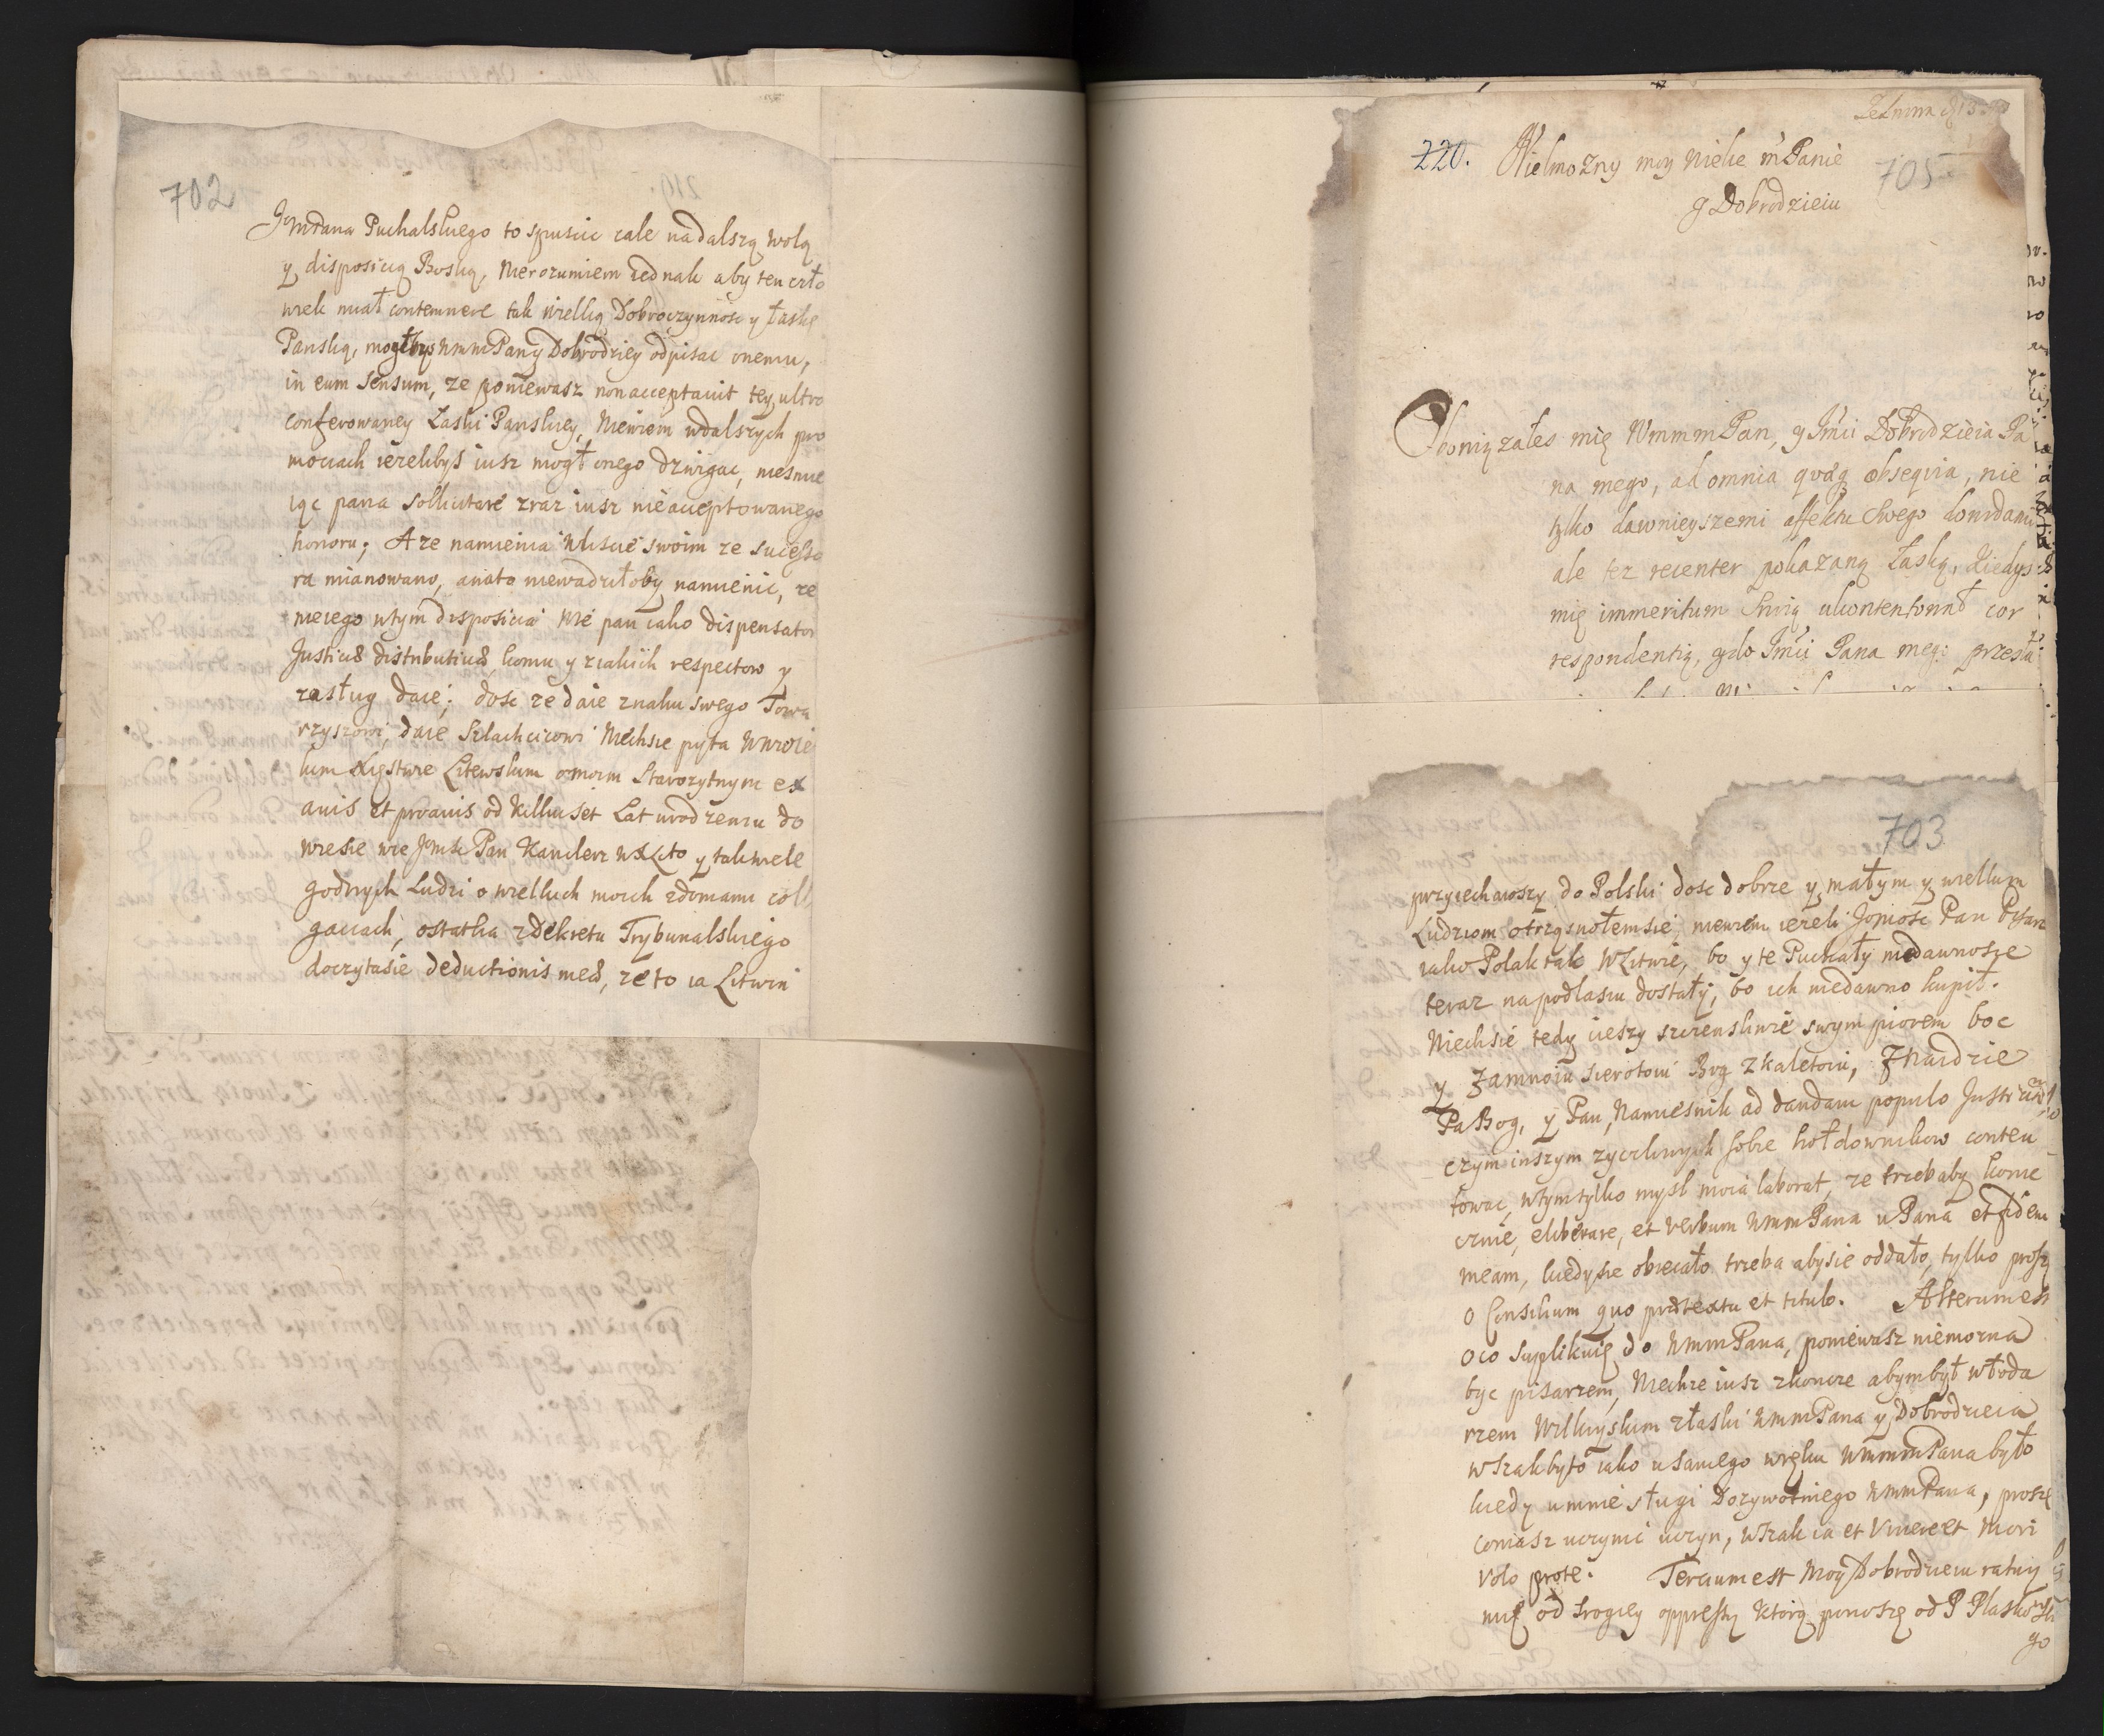 702
JmPana Puchalskiego to spuscic cale nadalszą wolą
y disposicią Boską, Nierozumiem iednak aby ten czło
wiek miał contemnere tak wielką Dobroczynnosc y łaskę
Panską, mogłbys WmmPan y Dobrodziey odpisac onemu,
in eum sensum, ze poniewasz non acceptavit tey ultro
conferowaney Łaski Panskiey, Niewiem wdalszych pro
mociach iezelibys iusz mogł onego dzwigac, niesmie
iąc pana sollicitare zraz iusz nieacceptowanego
honoru; A ze namienia wliscie swoim ze sucesso
ra mianowano, aniato niewadziłoby namienic, ze
niczego wtym disposicia Nie pan iako dispensator
Justiciæ distributivæ, komu y ziakich respectow y
zasług daie; dosc ze daie znaku swego Towa
rzyszowi, daie Szlachcicowi Niechsie pyta Wwiel
kim Xięstwie Litewskim omoim Starozytnym ex
avis et proavis od Kilkuset Lat urodzeniu do
wiesie wie Jmsc Pan Kanclerz WXLito y takwiele
godnych Ludzi o wielkich moich zdomami coll
gaciach, ostatka zdekretu Trybunalskiego
doczytasie deductionis meæ, ze to ia Litwin
220. Wielmozny moy Wielce m Panie
y Dobrodzieiu
705
Obowiązałes mię WmmmPan, y Jmci Dobrodzieia Pa
na mego, ad omnia quæq obsequia, nie
tylko dawnieyszemi affektu swego
ale tez recenter pokazaną Łaską, Kiedys
mię immeritum Swią ukontentował cor
respondentią, ydo Jmci Pana meg: przesła
703
przyiechawszy do Polski dosc dobrze y małym y wielkim
Ludziom otrząsnołemsie, niewiem iezeli Jgmosc Pan Pisarz
iako Polak tak WLitwie, bo y te Puchały niedawnosze
teraz napodlasiu dostały, bo ich niedawno kupił.
Niechsie tedy cieszy szczensliwie swym piorem boc
y zamnoiu sierotoiu Bog zkaletoiu, Znaidzie
Pa Bog, y Pan, Namiesnik ad dandam populo Justitiam
czym inszym zyczliwych sobie hołdownikow conten
towac, wtymtylko mysl moia laborat, ze trzebaby konie
cznie, eliberare, et verbum WmmPana uPana et fidem
meam, kiedysie obiecało trzeba abysie oddało, tylko proszę
o Consilium quo prætextu et titulo. Alterum est
oco suplikuię do WmmPana, poniewasz niemozna
byc pisarzem, Niechze iusz zkoncze abymbył włoda
rzem Wilkiyskim złaski WmmPana y Dobrodzieia
wszakbyto iako usamego wręku WmmmPana było
kiedy umnie sługi Dozywotniego WmmPana, proszę
comasz uczynic uczyn, wszak ia et Vivere et Mori
volo prote. Tercium est Moy Dobrodzieiu ratuy
mię od srogiey oppressÿ Ktorą ponoszę od P
go